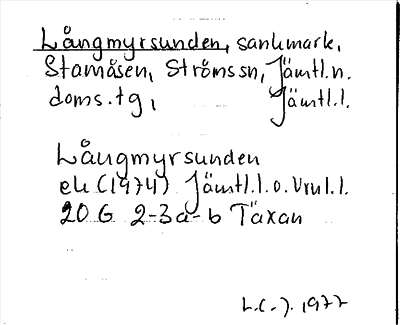 Långmyrsunden, sankmark,
Stamåsen, Ströms sn, Jämtl.n.
doms.tg, Jämtl.l.
Långmyrsunden
ek (1974) Jämtl.l.o.Vrnl.l.
20 G 2-3a-b Täxan
L.C-J. 1977